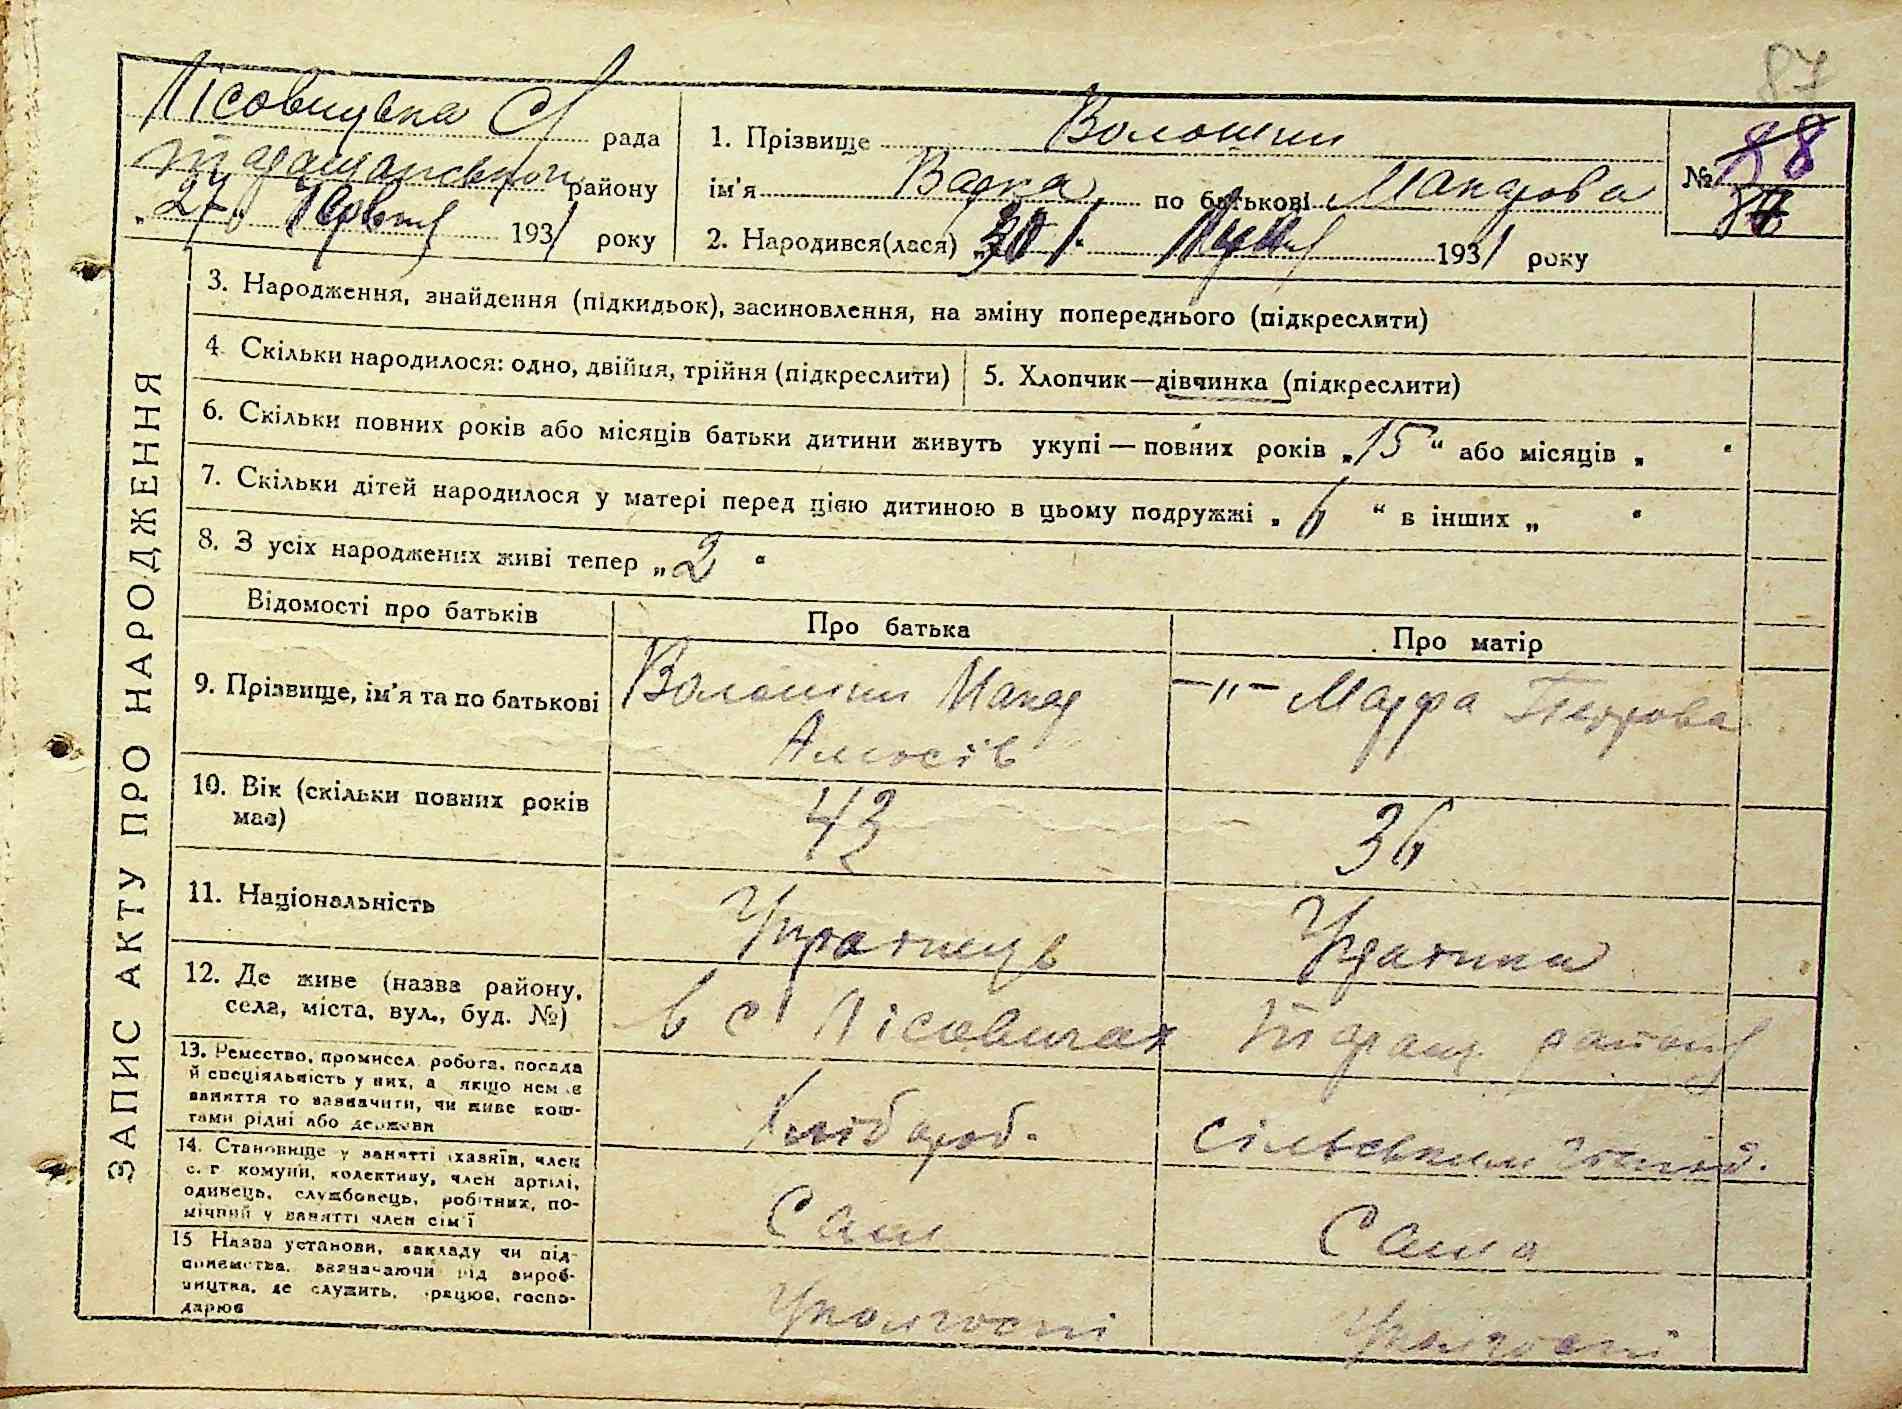 87
Лісовицька С
рада
Таращанського
району
„27" Червня 1931 року
1. Прізвище Волошин
ім'я Варка по батькові Макарова
2. Народився(лася) 1931 року
№ 88
87
ЗАПИС АКТУ ПРО НАРОДЖЕННЯ
3. Народження, знайдення (підкидьок), засиновлення, на зміну попереднього (підкреслити)
4. Скільки народилося: одно, двійня, трійня (підкреслити)
5. Хлопчик—дівчинка (підкреслити)
6. Скільки повних років або місяців батьки дитини живуть укупі — повних років „15" або місяців „ "
7. Скільки дітей народилося у матері перед цією дитиною в цьому подружжі „6" в інших „ "
8. З усіх народжених живі тепер „2"
Відомості про батьків
Про батька
Про матір
9. Прізвище, ім'я та по батькові
Волошин Макар
Амосів
—"— Марфа Петрова
10. Вік (скільки повних років
має)
43
36
11. Національність
Українець
Українка
12. Де живе (назва району,
села, міста, вул., буд. №)
в с Лісовичах Таращ. району
13. Ремество, промисел, робота, посада
й спеціяльність у них, а якщо немає
заняття то зазначити, чи живе кош-
тами рідні або держави
Хлібороб.
сільським господ.
14. Становище у занятті (хазяїн, член
с. г. комуни, колективу, член артілі,
одинець, службовець, робітник, по-
мічний у занятті член сім'ї
Сам
Сама
15 Назва установи, закладу чи під-
приємства, зазначаючи рід вироб-
ництва, де служить, працює, госпо-
дарює
У колгоспі
У колгоспі